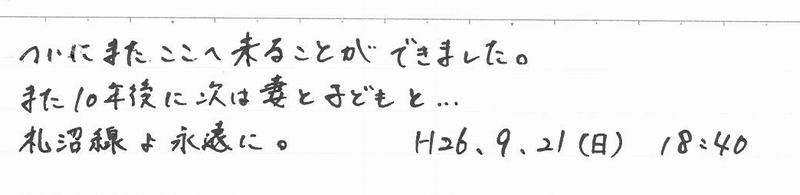 ついにまたここへ来ることができました。
また10年後に次は妻と子どもと…
札沼線よ永遠に。 H26、9、21(日) 18:40